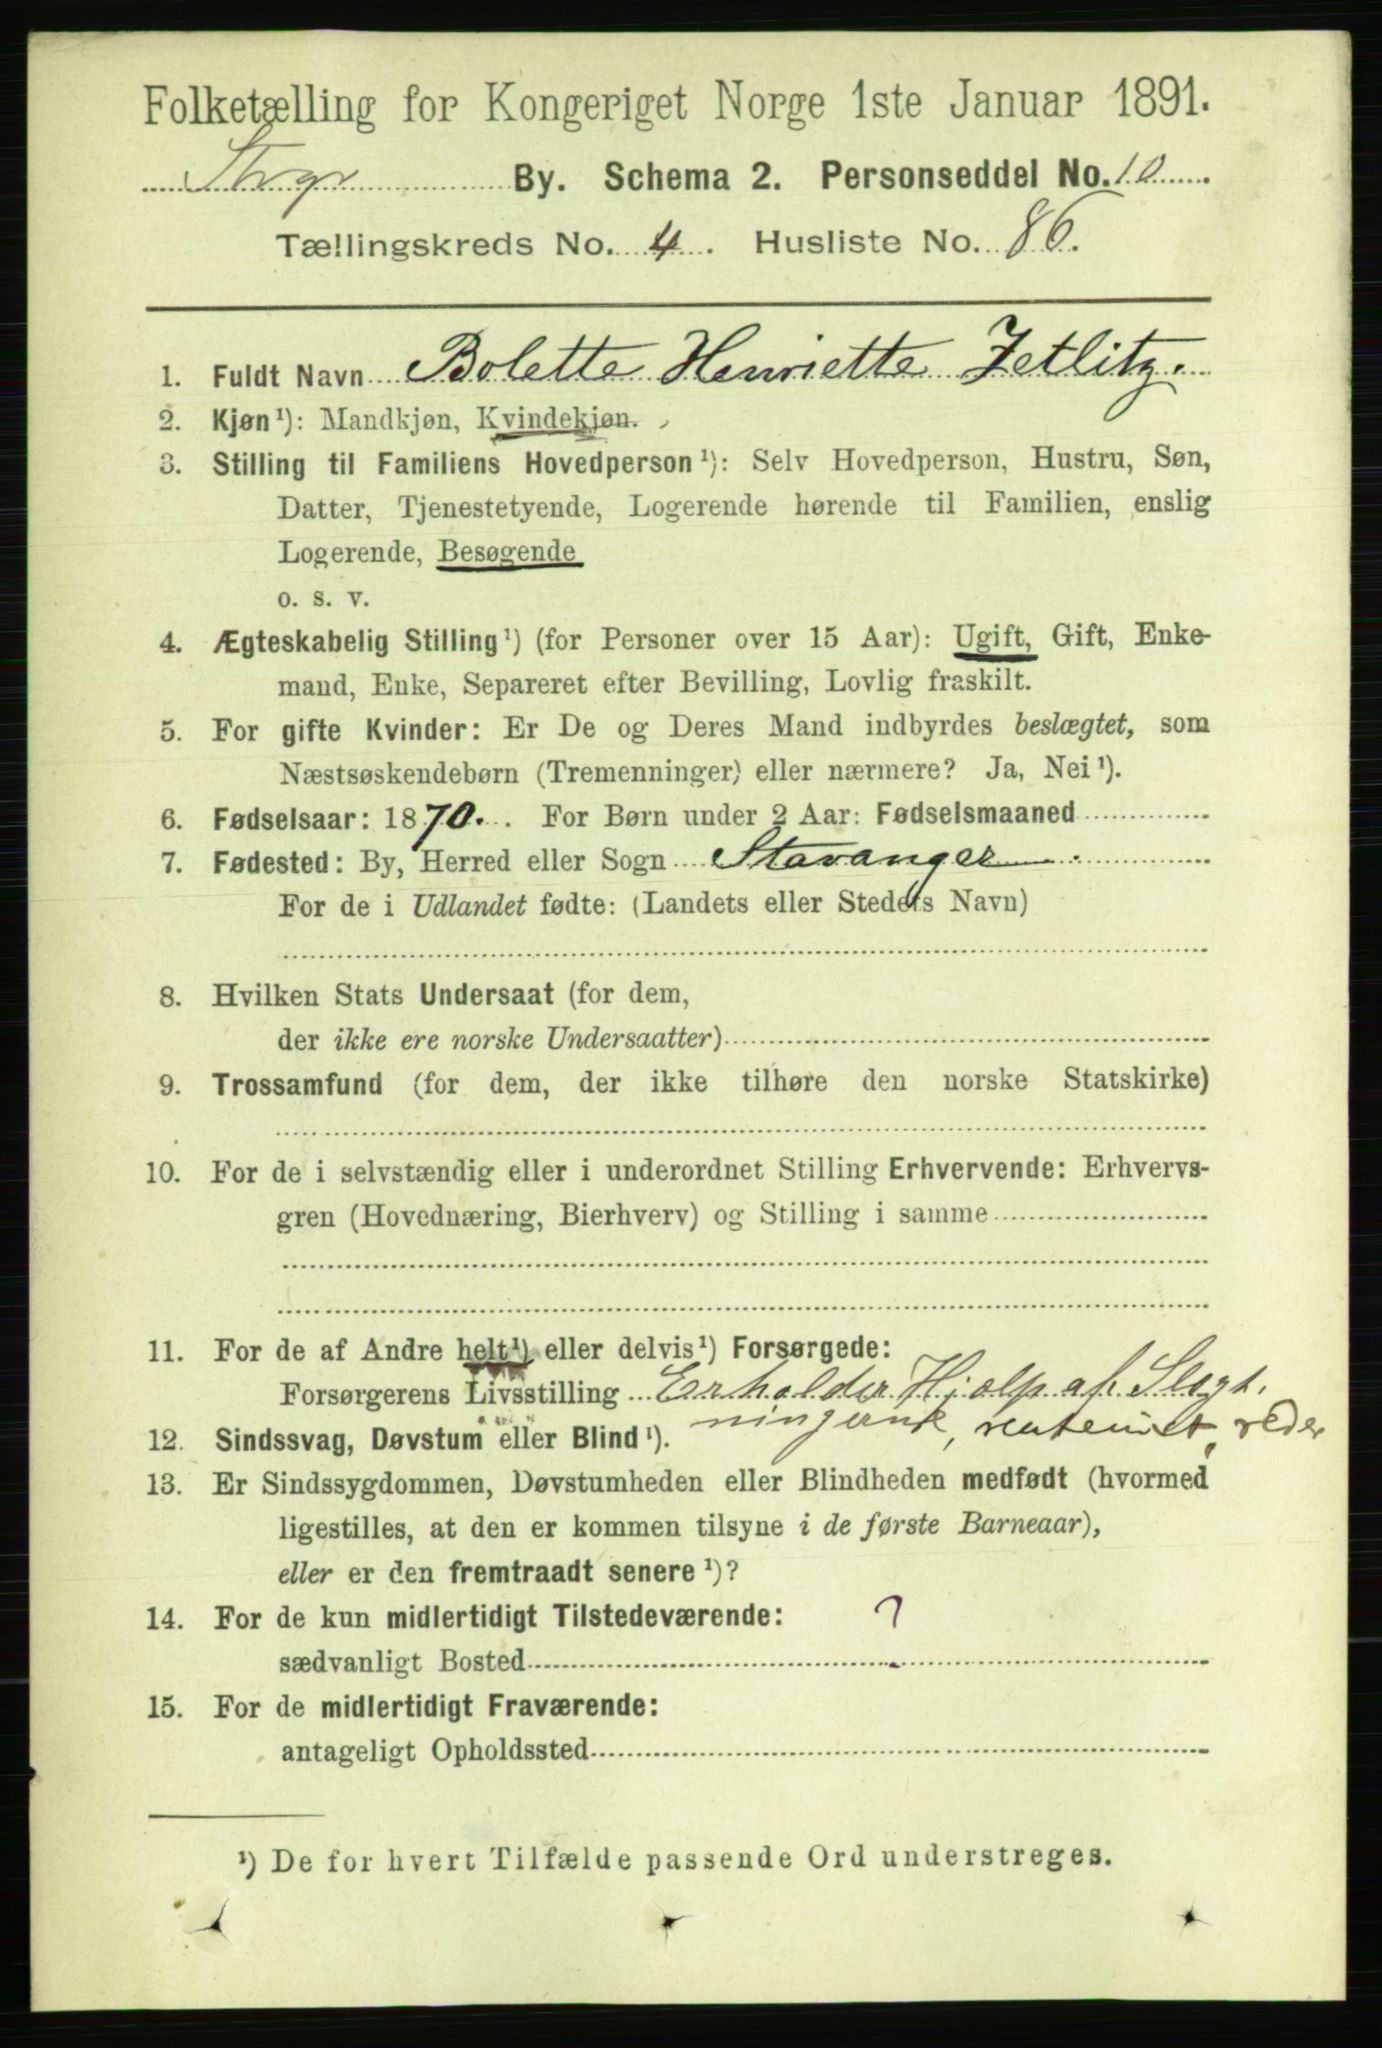 Folketælling for Kongeriget Norge 1ste Januar 1891.
Stvgr By. Schema 2. Personseddel No. 10
Tællingskreds No. 4. Husliste No. 86.
1. Fuldt Navn Bolette Henriette Zetlitz.
2. Kjøn¹): Mandkjøn, Kvindekjøn.
3. Stilling til Familiens Hovedperson¹): Selv Hovedperson, Hustru, Søn,
Datter, Tjenestetyende, Logerende hørende til Familien, enslig
Logerende, Besøgende
o. s. v.
4. Ægteskabelig Stilling¹) (for Personer over 15 Aar): Ugift, Gift, Enke-
mand, Enke, Separeret efter Bevilling, Lovlig fraskilt.
5. For gifte Kvinder: Er De og Deres Mand indbyrdes beslægtet, som
Næstsøskendebørn (Tremenninger) eller nærmere? Ja, Nei¹).
6. Fødselsaar: 1870. For Børn under 2 Aar: Fødselsmaaned
7. Fødested: By, Herred eller Sogn Stavanger
For de i Udlandet fødte: (Landets eller Stedets Navn)
8. Hvilken Stats Undersaat (for dem,
der ikke ere norske Undersaatter)
9. Trossamfund (for dem, der ikke tilhøre den norske Statskirke)
10. For de i selvstændig eller i underordnet Stilling Erhvervende: Erhvervs-
gren (Hovednæring, Bierhverv) og Stilling i samme
11. For de af Andre helt¹) eller delvis¹) Forsørgede:
Forsørgerens Livsstilling Erholder Hjælp af Slegt-
ningerne,
12. Sindssvag, Døvstum eller Blind¹).
13. Er Sindssygdommen, Døvstumheden eller Blindheden medfødt (hvormed
ligestilles, at den er kommen tilsyne i de første Barneaar),
eller er den fremtraadt senere¹)?
14. For de kun midlertidigt Tilstedeværende: ?
sædvanligt Bosted
15. For de midlertidigt Fraværende:
antageligt Opholdssted
¹) De for hvert Tilfælde passende Ord understreges.